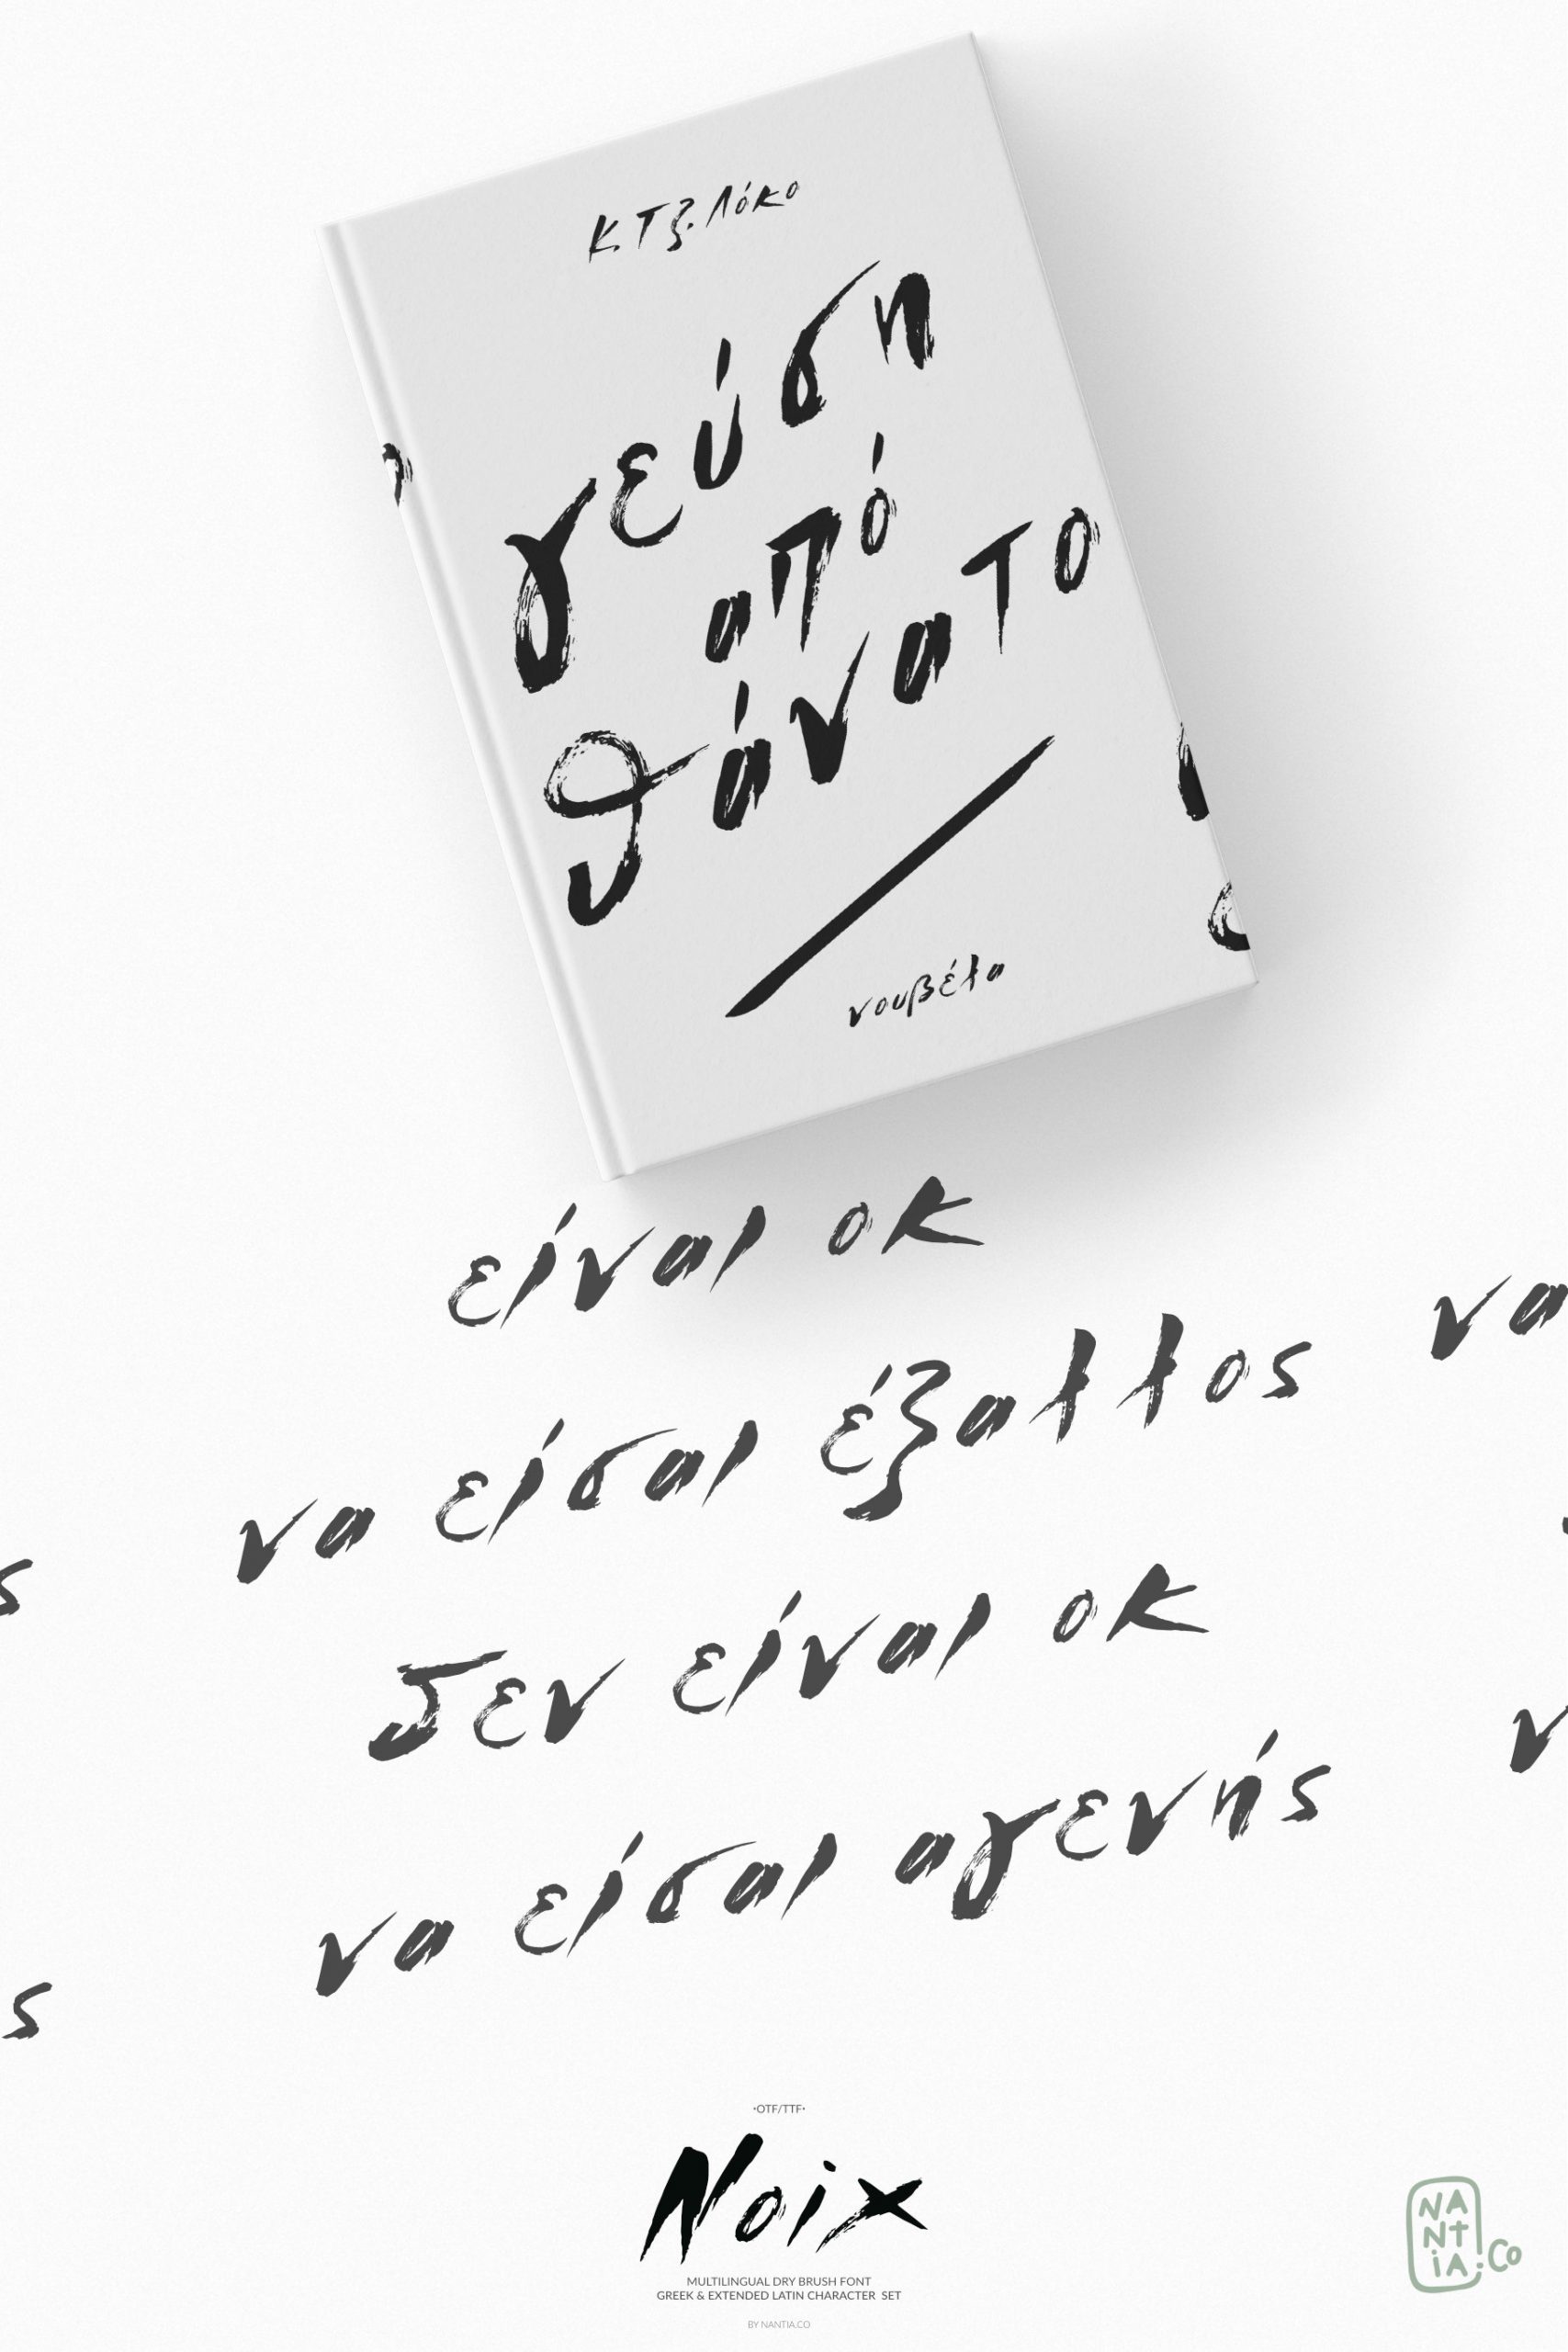 Κ. Τζ. Λόκο
γεύση
από
θάνατο
νουβέλα
είναι οκ
να
να είσαι έξαλλος
ς
δεν είναι οκ
ν
να είσαι αγενής
ς
•OTF/TTF•
Noix
MULTILINGUAL DRY BRUSH FONT
GREEK & EXTENDED LATIN CHARACTER SET
BY NANTIA.CO
NANtiA.Co